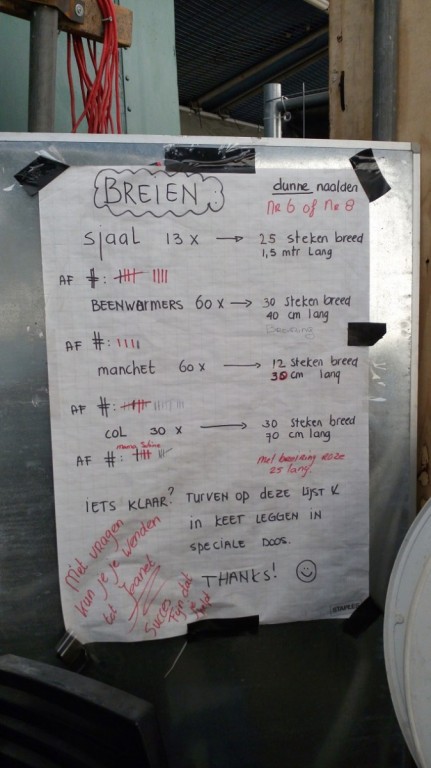 BREIEN:
dunne naalden
NR 6 of NR 8
sjaal 13 x → 25 steken breed
1,5 mtr Lang
AF #:
BEENWARMERS 60 x → 30 steken breed
40 cm lang
AF #:
manchet 60 x → 12 steken breed
30 cm lang
AF #:
COL 30 x → 30 steken breed
70 cm lang
AF #:
25 lang.
iets KLAAR? TURVEN OP DEZE LIJST &
in KEET LEGGEN IN
speciale DOOS.
THANKS!
Met vragen
kan je je wenden
tot
Succes
Fijn dat
je
STAPLES